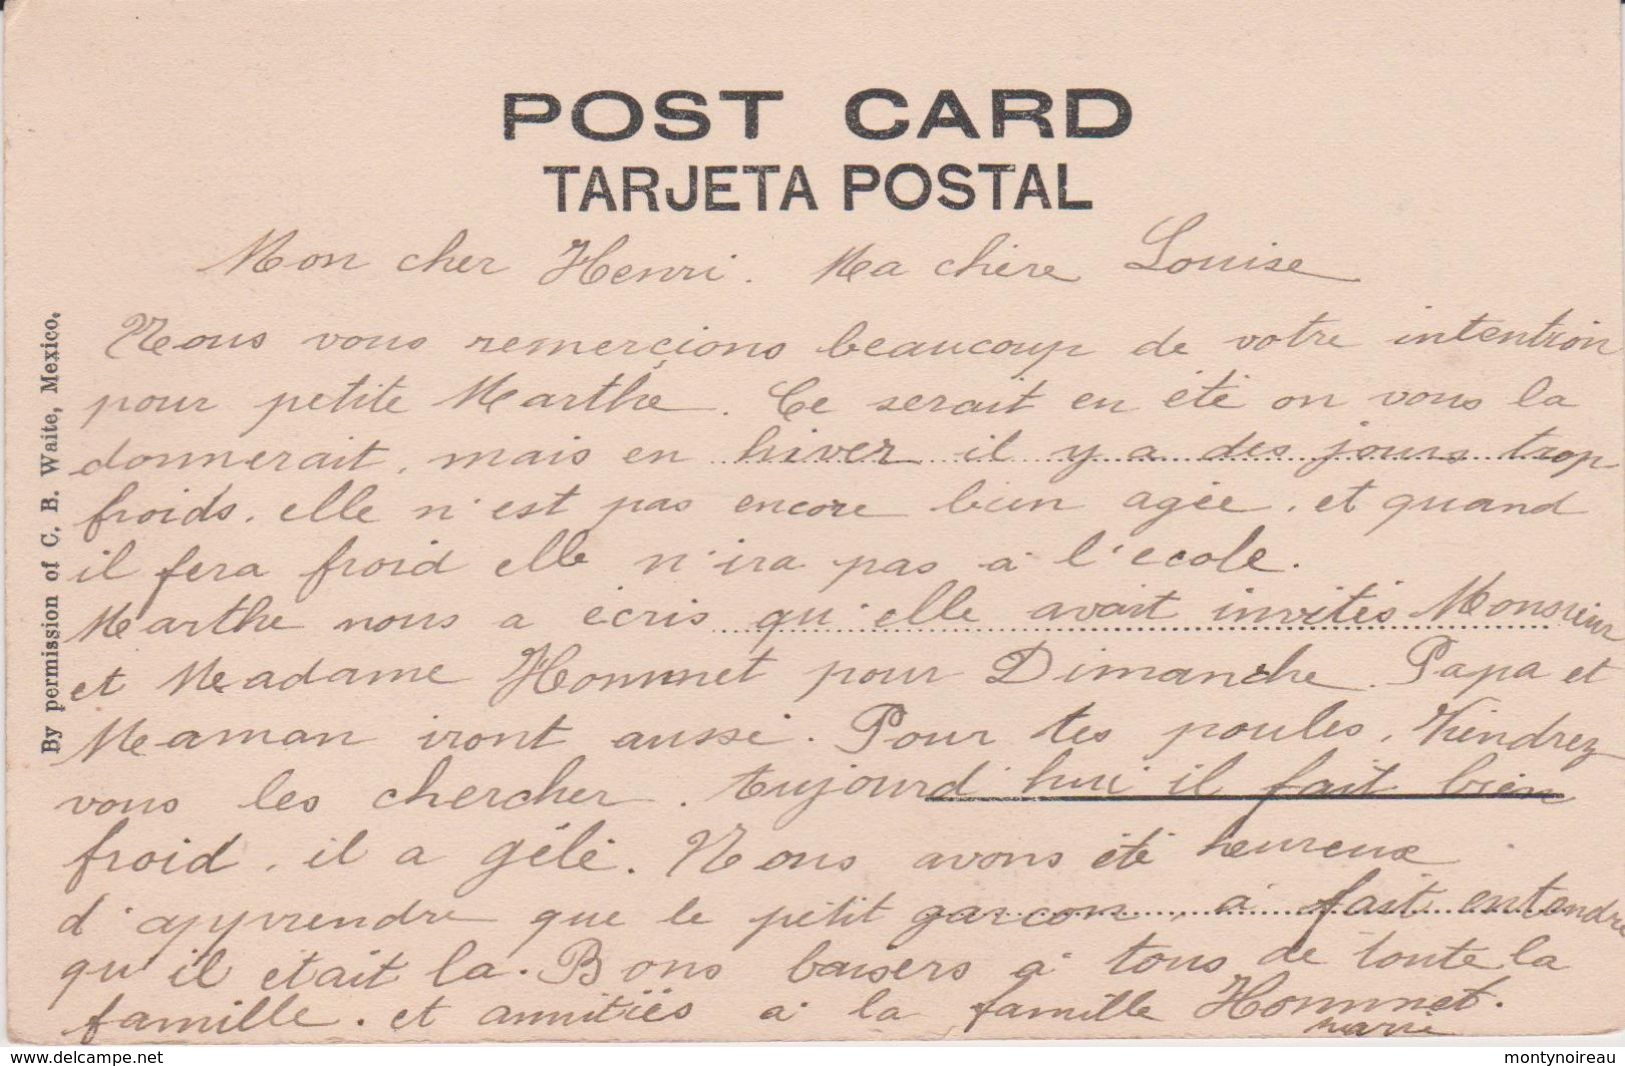 POST CARD
TARJETA POSTAL
By permission of C. B. Waite, Mexico.
Mon cher Henri. Ma chère Louise
Nous vous remerçions beaucoup de votre intention
pour petite Marthe. Ce serait en été on vous la
donnerait, mais en hiver il y a des jours trop
froids. elle n'est pas encore bien agée. et quand
il fera froid elle n'ira pas à l'école.
Marthe nous a écris qu'elle avait invités Monsieur
et Madame Hommet pour Dimanche. Papa et
Maman iront aussi. Pour tes poules. Viendrez
vous les chercher. Aujourd'hui il fait bien
froid. il a gélé. Nous avons été heureux
d'apprendre que le petit garçon, a fait entendre
qu'il était la. Bons baisers à tous de toute la
famille. et amitiés à la famille Hommet.
Marie
delcampe.net
montynoireau